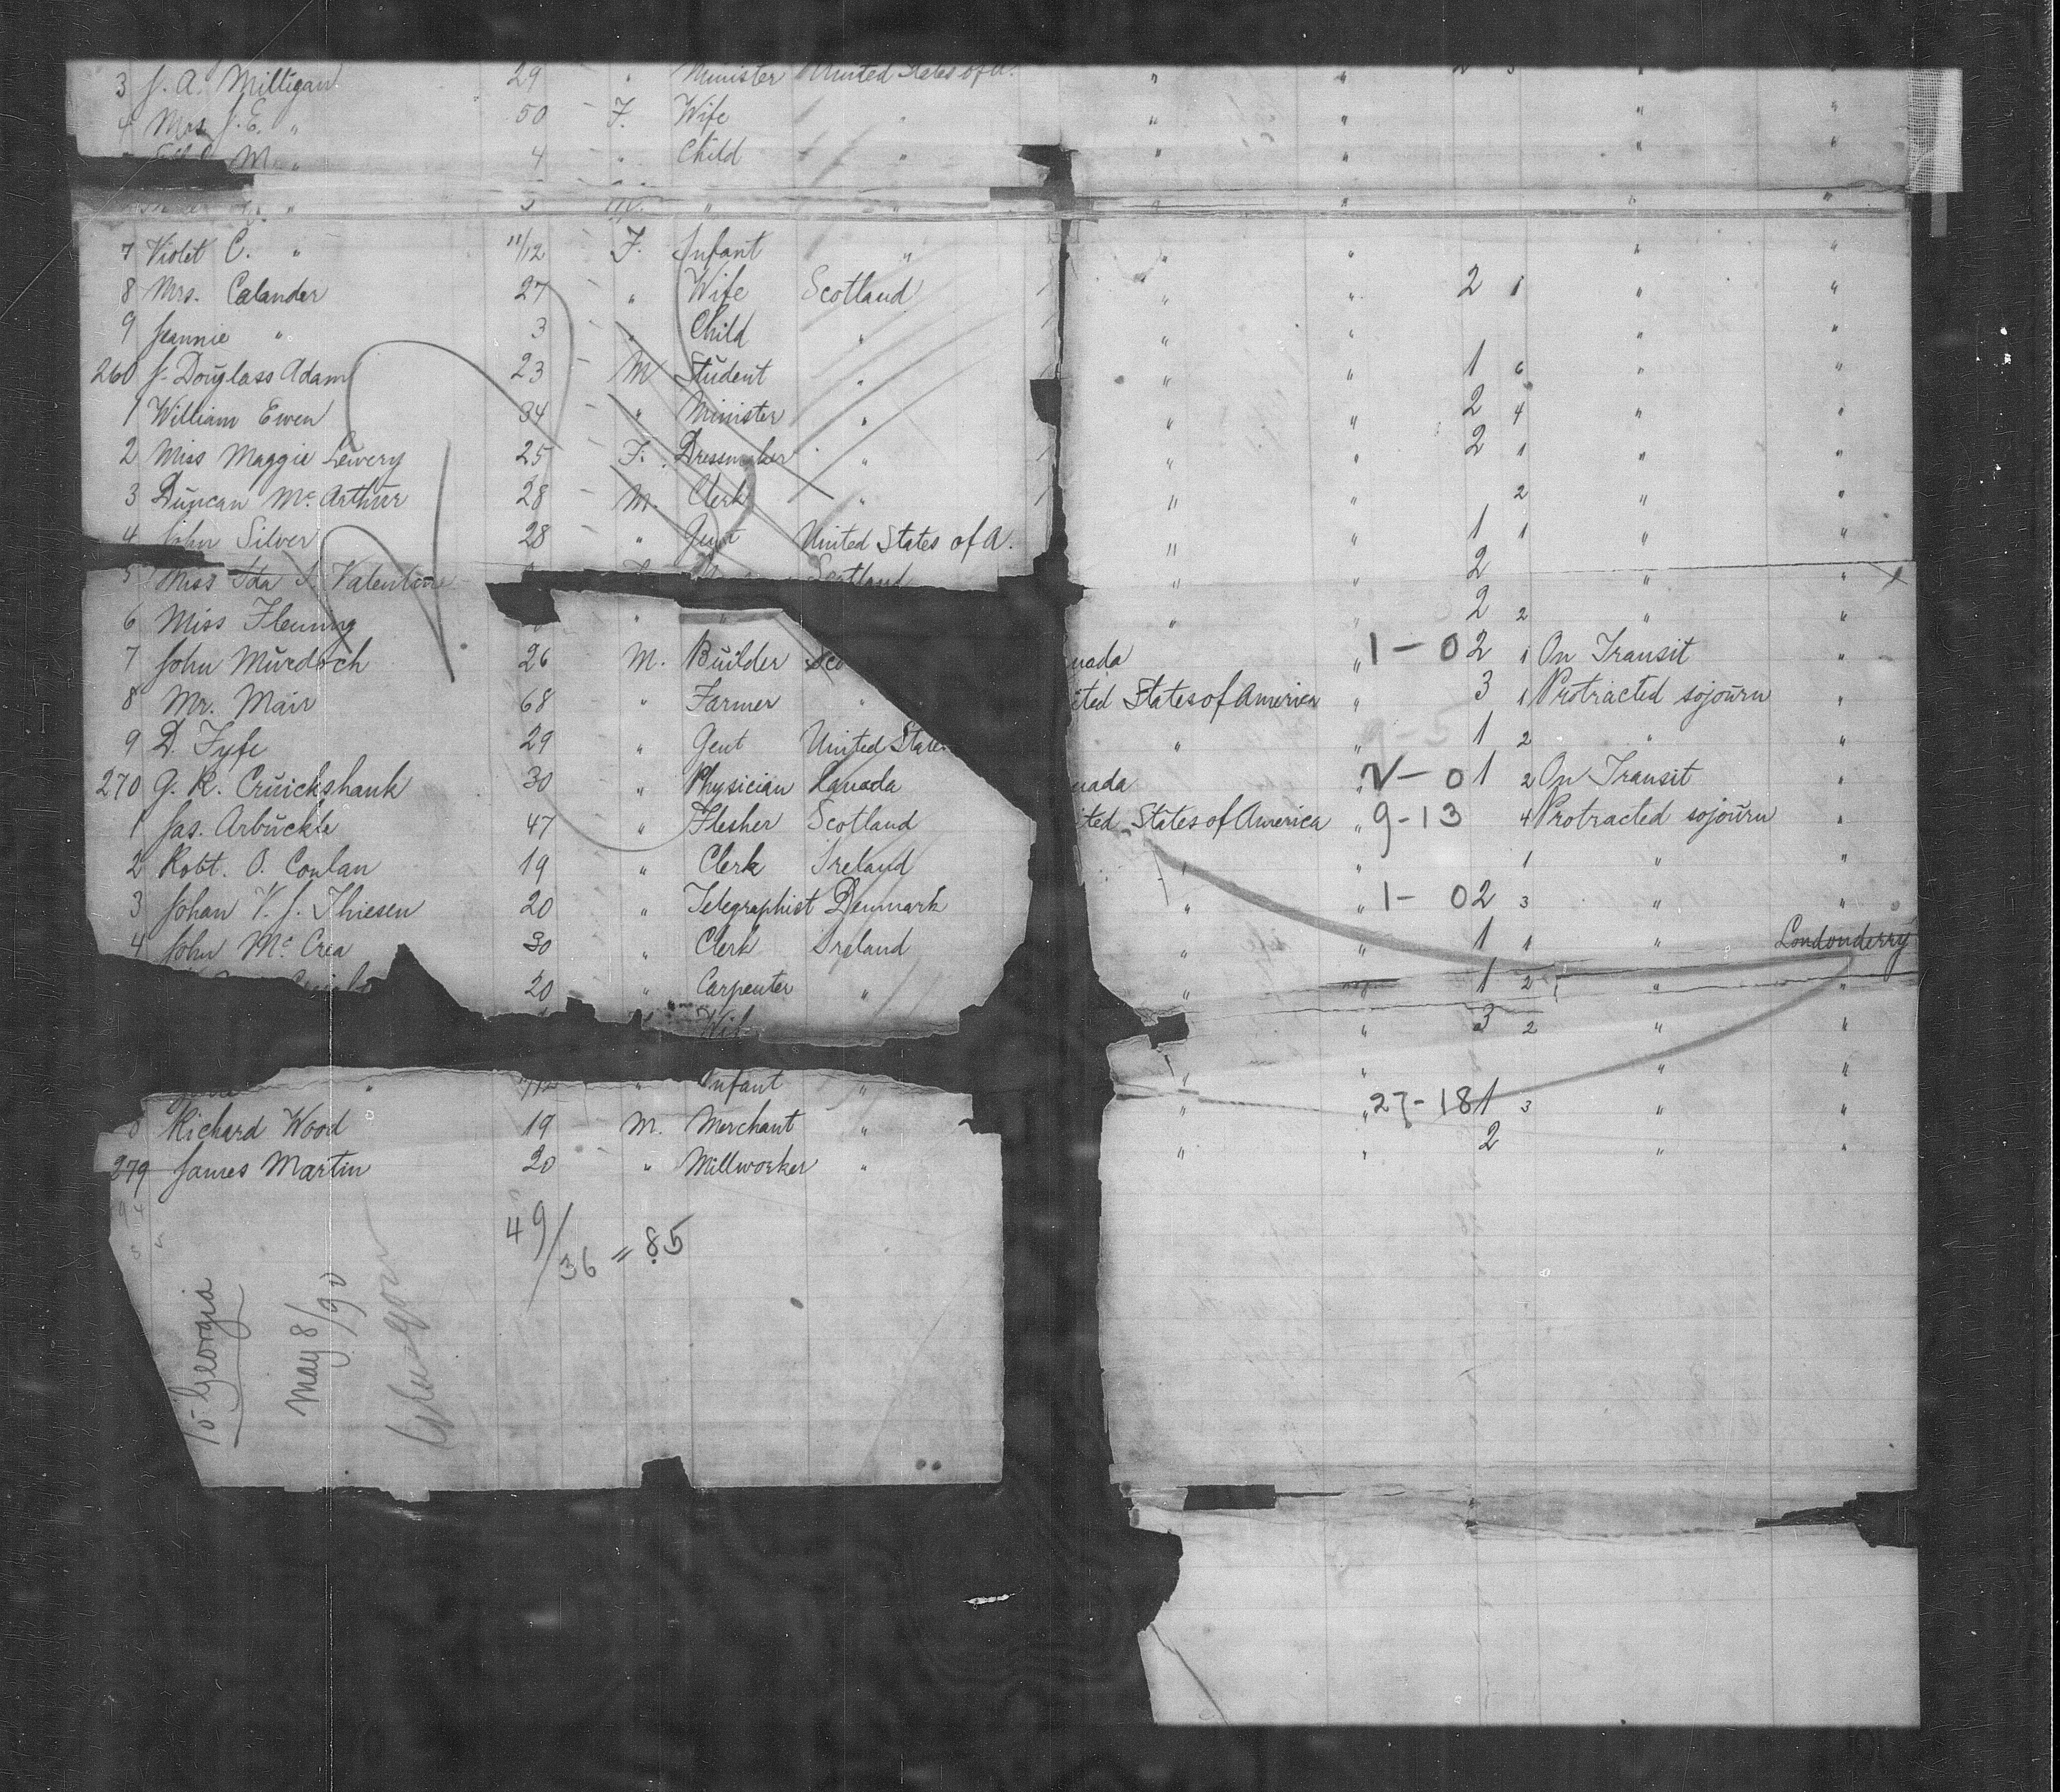 3 J. A. Milligan 29 " Minister United States of A. " "
4 Mrs J. E. " 50 - F. Wife " " " " "
M. " 4 - " Child " " " " "
" " " " " " "
7 Violet C. " 11/12 - F. Infant " " " " "
8 Mrs. Calander 27 - " Wife Scotland " " 2 1 " "
9 Jeannie " 3 - " Child " " " " "
260 J. Douglass Adam 23 - M Student " " " 1 6 " "
1 William Ewen 34 - " Minister " " " 2 4 " "
2 Miss Maggie Lewery 25 - F. Dressmaker " " " 2 1 " "
3 Duncan Mc. Arthur 28 - M. Clerk " " " 2 " "
4 John Silver 28 " Gent United States of A. " " 1 1 " "
5 Miss Ida J. Valentine Scotland " " 2 " "
6 Miss Fleming " " " " 2 2 " "
7 John Murdoch 26 - M. Builder Sco nada " 1-0 2 1 On Transit "
8 Mr. Mair 68 - " Farmer " ited States of America " 3 1 Protracted sojourn "
9 D. Fyfe 29 - " Gent United State " " 1 2 " "
270 G. R. Cruickshank 30 - " Physician Canada nada " V-0 1 2 On Transit "
1 Jas. Arbuckle 47 - " Flesher Scotland ited States of America " 9-13 4 Protracted sojourn "
2 Robt. O. Conlan 19 " Clerk Ireland " " 1 " "
3 Johan V. J. Thiesen 20 " Telegraphist Denmark " " 1-0 2 3 " "
4 John Mc Crea 30 " Clerk Ireland " " 1 1 " Londonderry
20 " Carpenter " " 1 2 " "
Wif " 3 2 " "
" " Infant " " " " "
8 Richard Wood 19 - M. Merchant " " " 27-18 1 3 " "
279 James Martin 20 - " Millworker " " " 2 " "
49/36 = 85
To Georgia
May 8/90